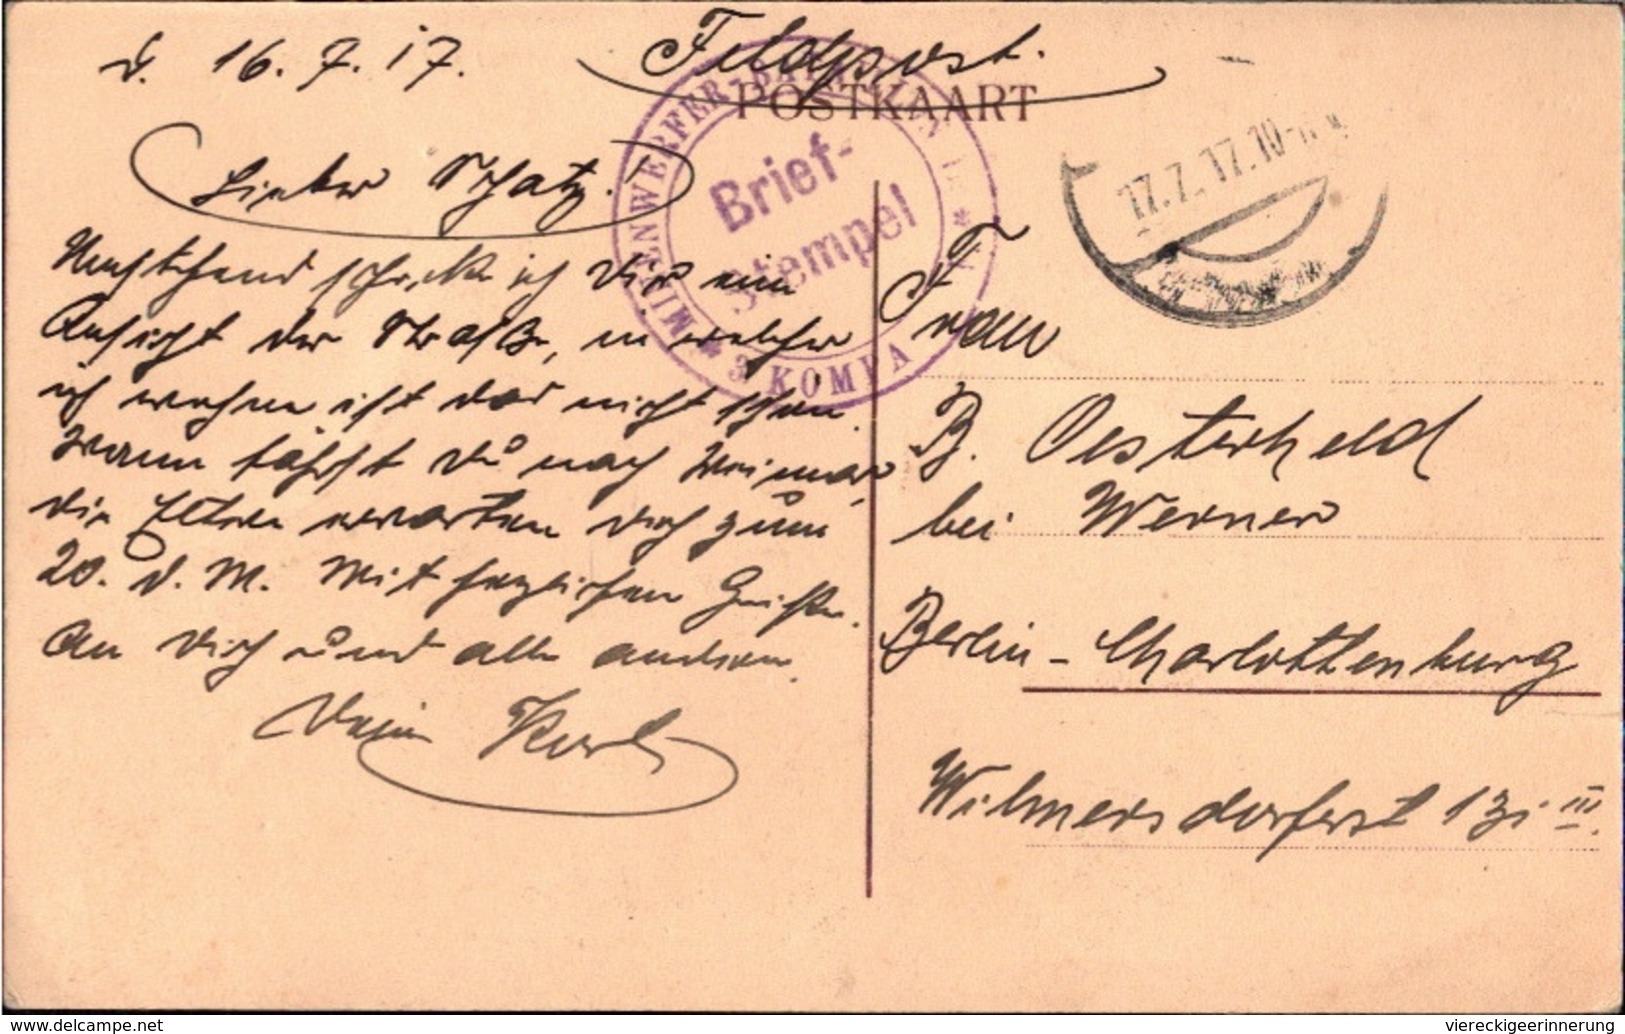 d. 16.7.17.
Feldpost.
POSTKAART
Lieber Schatz!
Umstehend schicke ich Dir eine
Ansicht der Straße, in welcher
ich wohne ist das nicht schön.
Wann fährst Du nach Weimar,
die Eltern erwarten Dich zum
20. d. M. Mit herzlichen Grüßen
an Dich und alle anderen.
Dein Karl
MINENWERFER-BATAILLON
* 3. KOMPA
Brief-
Stempel
17.7.17.10-11
Frau
B. Oesterheld
bei Werner
Berlin-Charlottenburg
Wilmersdorferst 131 III.
viereckigeerinnerung
www.delcampe.net